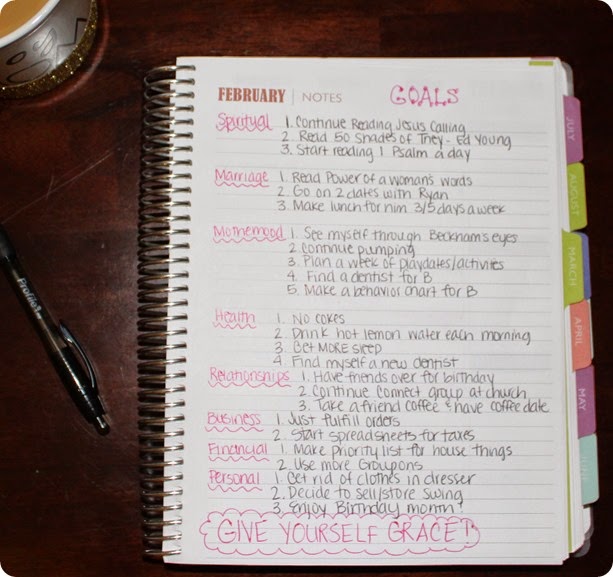 FEBRUARY | NOTES GOALS
Spiritual 1. Continue Reading Jesus Calling
2. Read 50 Shades of They - Ed Young
3. Start reading 1 Psalm a day
Marriage 1. Read Power of a Woman's words
2. Go on 2 dates with Ryan
3. Make lunch for him 3/5 days a week
Motherhood 1. See myself through Beckham's eyes
2. Continue pumping
3. Plan a week of playdates/activities
4. Find a dentist for B
5. Make a behavior chart for B
Health 1. No cokes
2. Drink hot lemon water each morning
3. Get MORE sleep
4. Find myself a new dentist
Relationships 1. Have friends over for birthday
2. Continue connect group at church
3. Take a friend coffee & have coffee date
Business 1. Just fulfill orders
2. Start spreadsheets for taxes
Financial 1. Make priority list for house things
2. Use more Groupons
Personal 1. Get rid of clothes in dresser
2. Decide to sell/store swing
3. Enjoy Birthday month!
GIVE YOURSELF GRACE!
JULY
AUGUST
MARCH
APRIL
MAY
JUNE